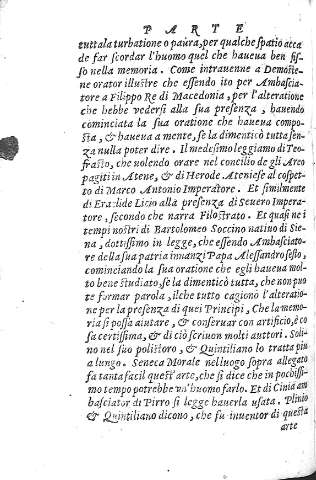 PARTE
tuttala turbatione o paura, per qualche spatio acca
de far scordar l'huomo quel che haueua ben fis-
so nella memoria. Come intrauenne a Demoste-
ne orator illustre che essendo ito per Ambascia-
tore a Filippo Re di Macedonia, per l'alteratione
che hebbe vedersi alla sua presenza, hauendo
cominciata la sua oratione che haueua compo-
sta, & haueua a mente, se la dimenticò tutta sen-
za nulla poter dire. Il medesimo leggiamo di Teo-
frasto, che volendo orare nel concilio de gli Areo
pagiti in Atene, & di Herode Ateniese al cospet-
to di Marco Antonio Imperatore. Et similmente
di Eraclide Licio alla presenza di Seuero Impera-
tore, secondo che narra Filostrato. Et quasi ne i
tempi nostri di Bartolomeo Soccino natiuo di Sie-
na, dottissimo in legge, che essendo Ambasciato-
re della sua patria innanzi Papa Alessandro sesto,
cominciando la sua oratione che egli haueua mol-
to bene studiato, se la dimenticò tutta, che non puo
te formar parola, ilche tutto cagionò l'alteratio-
ne per la presenza di quei Principi, Che la memo-
ria si possa aiutare, & conseruar con artificio, è co
sa certissima, & di ciò scriuon molti auttori. Soli-
no nel suo polistoro, & Quintiliano lo tratta piu
a lungo. Seneca Morale nel luogo sopra allegato
fa tanta facil quest'arte, che si dice che in pochissi-
mo tempo potrebbe vn'huomo farlo. Et di Cinia am
basciator di Pirro si legge hauerla vsata. Plinio
& Quintiliano dicono, che fu inuentor di questa
arte